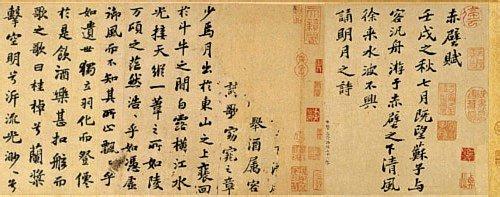 赤壁賦
壬戌之秋七月既望蘇子与
客汎舟游于赤壁之下清風
徐来水波不興
誦明月之詩
舉酒属客
歌窈窕之章
少焉月出於東山之上裵回
於斗牛之間白露横江水
光接天縱一葦之所如陵
万頃之茫然浩々乎如憑虚
御風而不知其所止飄々乎
如遺世獨立羽化而登僊
於是飲酒樂甚扣舷而
歌之歌曰桂棹兮蘭槳
擊空明兮泝流光渺々兮